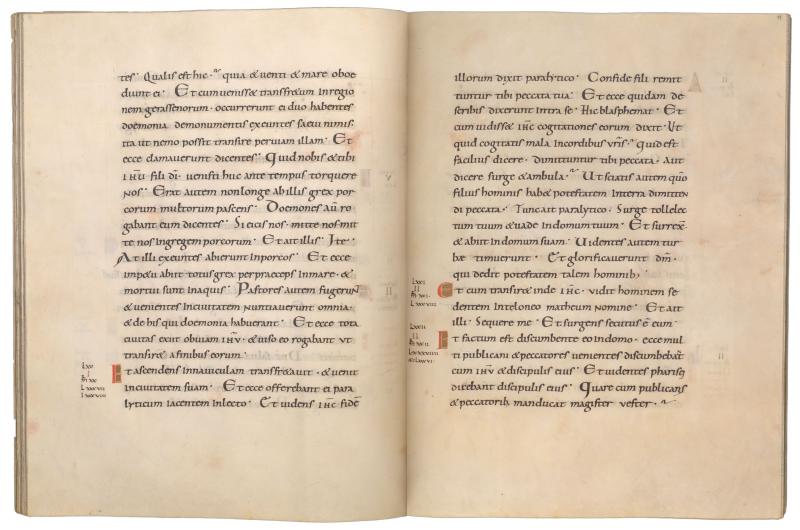 tes· Qualis est hic· quia & venti & mare oboe
diunt ei· Et cum venisset transfretum in regio
nem gerassenorum· occurrerunt ei duo habentes
doemonia de monumentis exeuntes saevi nimis·
ita ut nemo posset transire per viam illam· Et
ecce clamaverunt dicentes· Quid nobis & tibi
IHU fili dī· venisti huc ante tempus torquere
nos· Erat autem non longe ab illis grex por-
corum multorum pascens· Doemones aū ro
gabant eum dicentes· Si eicis nos· mitte nos mit
te nos in gregem porcorum· Et ait illis· Ite·
At illi exeuntes abierunt in porcos· Et ecce
impetu abiit totus grex per praeceps in mare· &
mortui sunt in aquis· Pastores autem fugerunt
& venientes in civitatem nuntiaverunt omnia·
& de his qui doemonia habuerant· Et ecce tota
civitas exiit obviam IHV· & viso eo rogabant ut
transiret a finibus eorum·
Et ascendens in naviculam transfretavit· & venit
in civitatem suam· Et ecce offerebant ei para
lyticum iacentem in lecto· Et videns IHC fidē
illorum dixit paralytico· Confide fili remit
tuntur tibi peccata tua· Et ecce quidam de
scribis dixerunt intra se· Hic blasphemat· Et
cum vidisset IHC cogitationes eorum dixit· Ut
quid cogitatis mala in cordibus vr̄is· quid est
facilius dicere· dimittuntur tibi peccata· Aut
dicere surge & ambula· Ut sciatis autem quō
filius hominis habet potestatem in terra dimitten
di peccata· Tunc ait paralytico· Surge tolle lec
tum tuum & vade in domum tuam· Et surrex̄
& abiit in domum suam· Videntes autem tur
bæ timuerunt· Et glorificaverunt dm̄·
qui dedit potestatem talem hominib;
Et cum transiret inde IHC· vidit hominem se
dentem in teloneo matheum nomine· Et ait
illi· Sequere me· Et surgens secutus ē eum·
Et factum est discumbente eo in domo· ecce mul
ti publicani & peccatores venientes discumbebāt
cum IHV & discipulis eius· Et videntes pharisęi
dicebant discipulis eius· Quare cum publicanis
& peccatorib; manducat magister vester·